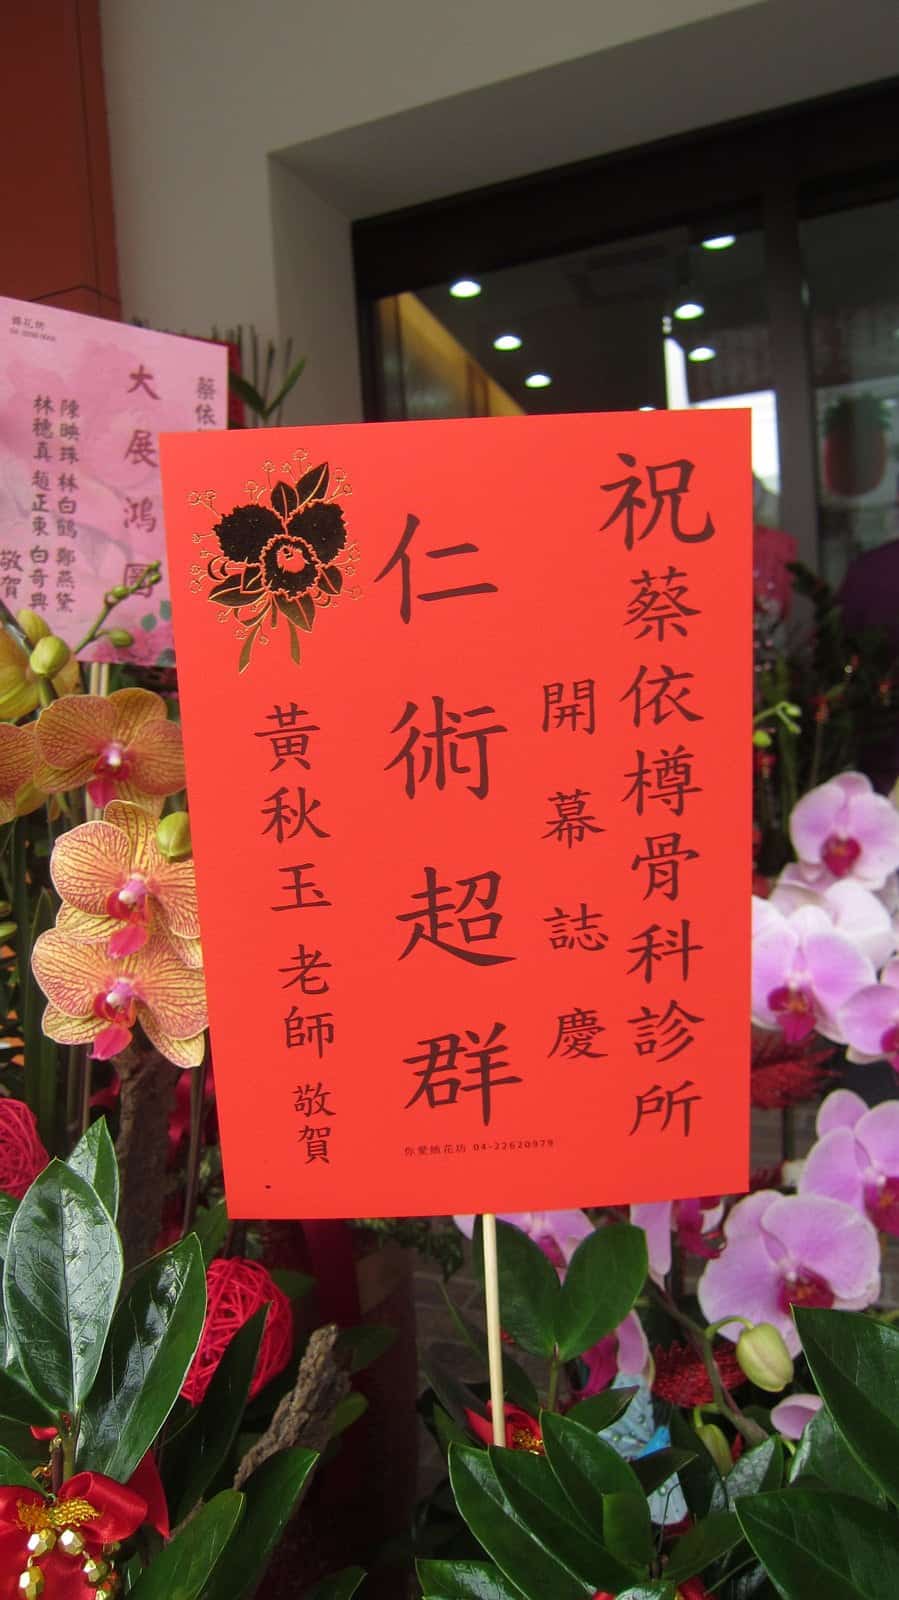 祝蔡依樽骨科診所
開幕誌慶
仁術超群
黃秋玉老師敬賀
你愛她花坊 04-22620979
蔡依
大展鴻圖
陳映珠 林白鶴 鄭燕黛
林穗真 趙正東 白奇典
敬賀